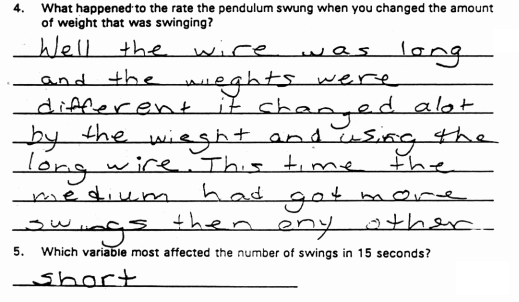 4. What happened to the rate the pendulum swung when you changed the amount
of weight that was swinging?
Well the wire was long
and the wieghts were
different it changed alot
by the wieght and using the
long wire. This time the
medium had got more
swings then eny other
5. Which variable most affected the number of swings in 15 seconds?
short